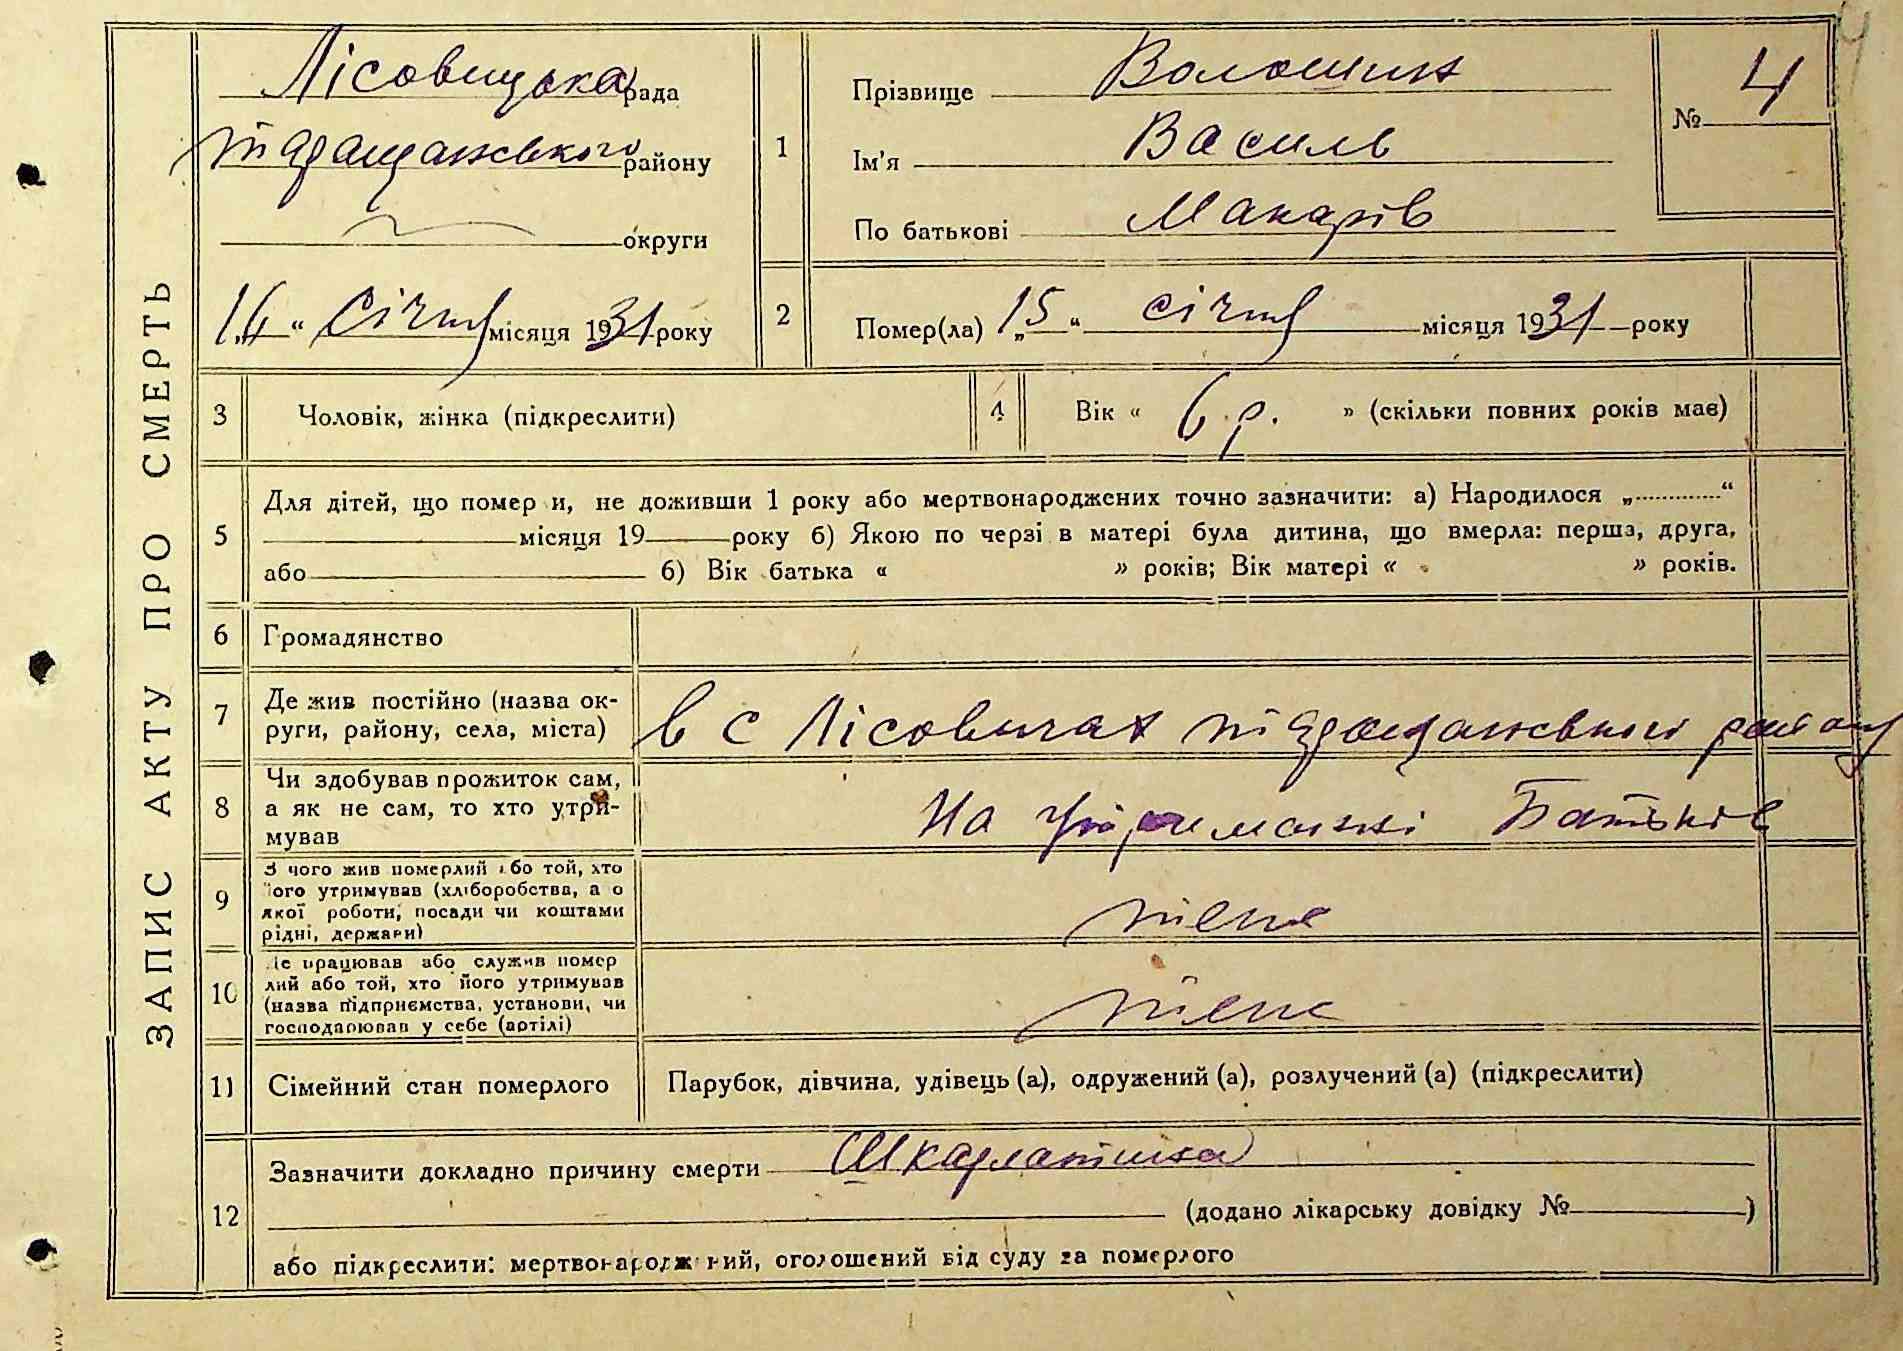 ЗАПИС АКТУ ПРО СМЕРТЬ
Лісовицька рада
Таращанського району
округи
"16" Січня місяця 1931 року
1
Прізвище Волошин
Ім'я Василь
По батькові Макарів
№ 4
2
Помер(ла) "15" січня місяця 1931 року
3 Чоловік, жінка (підкреслити)
4 Вік « 6 р. » (скільки повних років має)
5
Для дітей, що помер и, не доживши 1 року або мертвонароджених точно зазначити: а) Народилося „............“
місяця 19 року б) Якою по черзі в матері була дитина, що вмерла: перша, друга,
або б) Вік батька « » років; Вік матері « » років.
6 Громадянство
7 Де жив постійно (назва ок-
руги, району, села, міста)
в с Лісовичах Таращанського району
8 Чи здобував прожиток сам,
а як не сам, то хто утри-
мував
На утриманні Батьків
9 З чого жив померлий або той, хто
його утримував (хліборобства, а о
якої роботи, посади чи коштами
рідні, держави)
теж
10 Де працював або служив помер
лий або той, хто його утримував
(назва підприємства, установи, чи
господарював у себе (артілі)
теж
11 Сімейний стан померлого
Парубок, дівчина, удівець (а), одружений (а), розлучений (а) (підкреслити)
12
Зазначити докладно причину смерти Шкарлатина
(додано лікарську довідку № )
або підкреслити: мертвонароджений, оголошений від суду за померлого